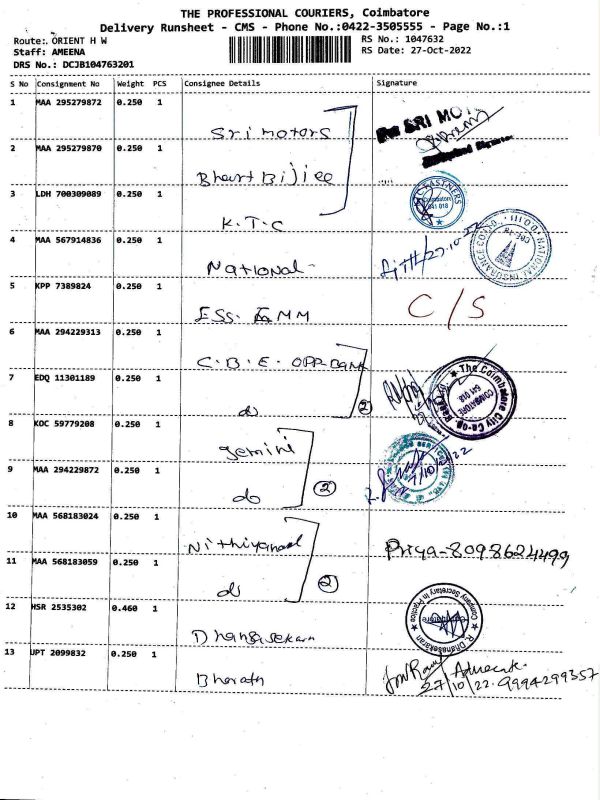 THE PROFESSIONAL COURIERS, Coimbatore
Delivery Runsheet - CMS - Phone No.:0422-3505555 - Page No.:1
Route: ORIENT H W
RS No.: 1047632
Staff: AMEENA
RS Date: 27-Oct-2022
DRS No.: DCJB104763201
S No Consignment No Weight PCS Consignee Details Signature
1 MAA 295279872 0.250 1
Sri motors
SRI MOT
2 MAA 295279870 0.250 1
Bhart Bijlee
3 LDH 700309089 0.250 1
K.T.C
FASTNERS
Coimbatore
641 018
4 MAA 567914836 0.250 1
National
27.10.22
NATIONAL INSURANCE CO.
5 KPP 7389824 0.250 1
ESS. EMM
C/S
6 MAA 294229313 0.250 1
C.B.E. OPP-BANK
7 EDQ 11301189 0.250 1
do 2
The Coimbatore City Co-op. Bank
COIMBATORE
641 018
8 KOC 59779208 0.250 1
gemini
9 MAA 294229872 0.250 1
do 2
10 MAA 568183024 0.250 1
Nithiyanand
Priya-8098624499
11 MAA 568183059 0.250 1
do 2
12 HSR 2535302 0.460 1
Dhanasekaran
R. Dhanasekaran
Company Secretary In Practice
Coimbatore
13 UPT 2099832 0.250 1
Bharath
Advocate
27/10/22. 9994299357